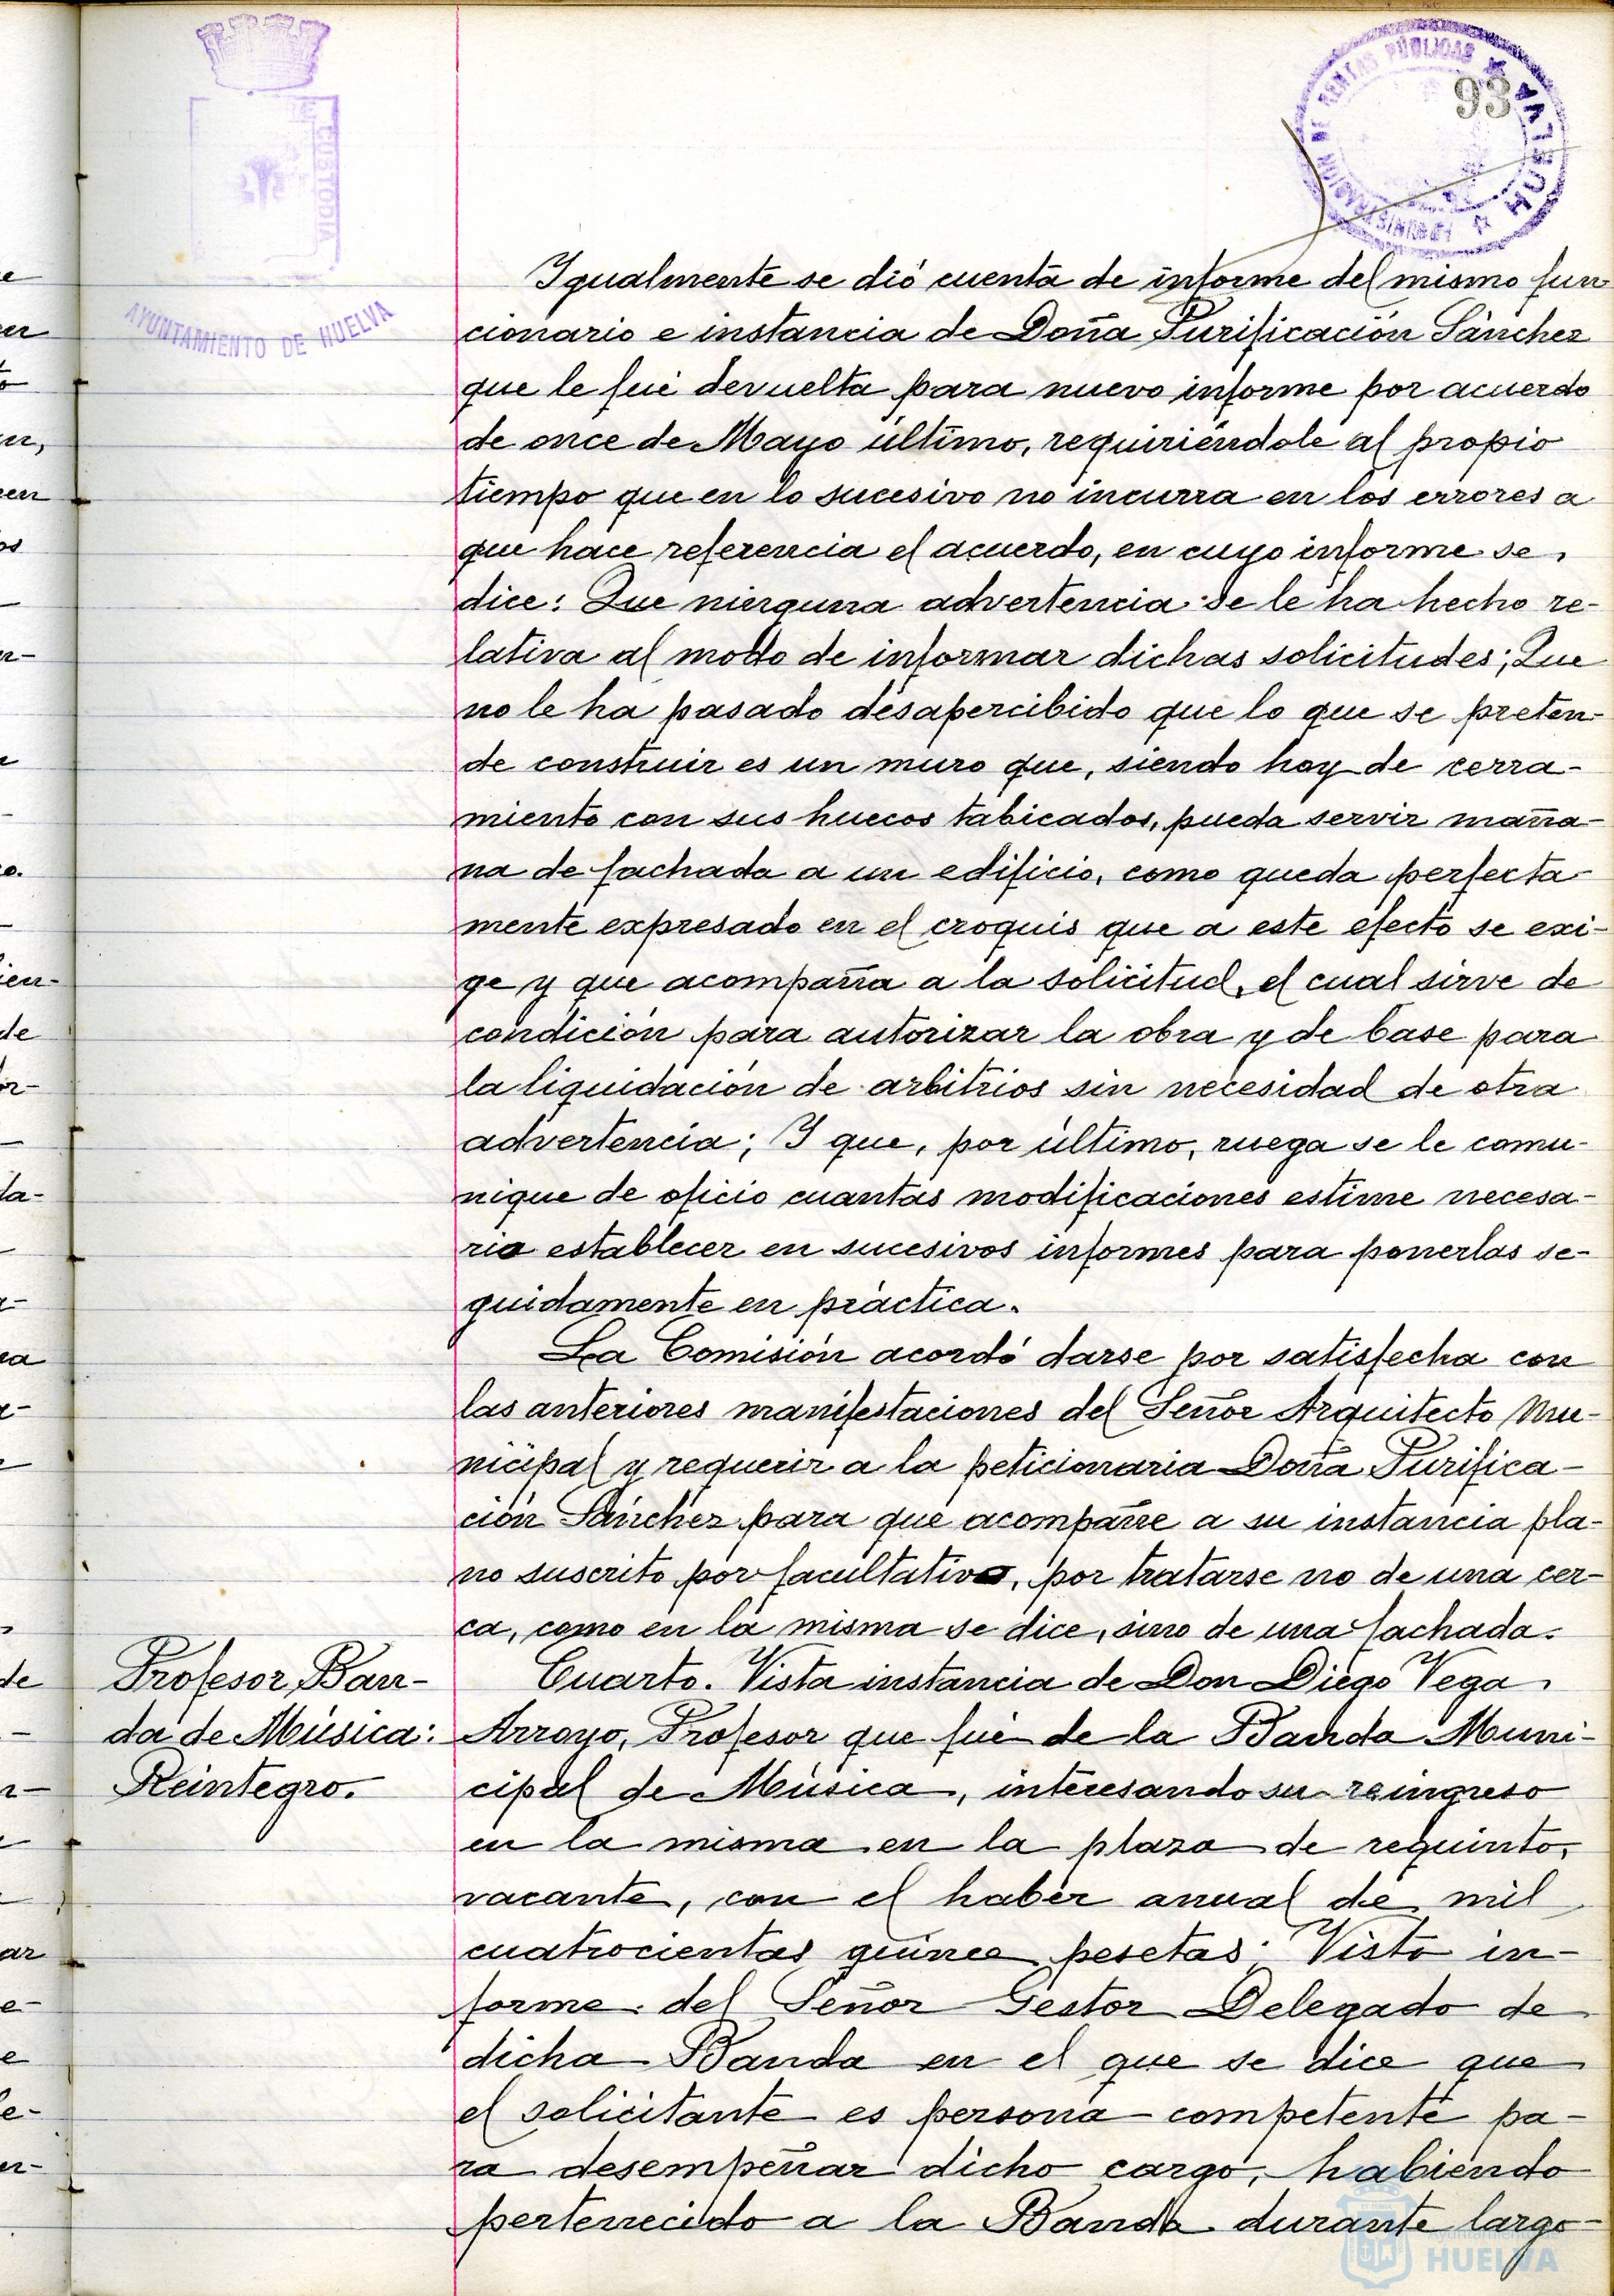 93
ADMINISTRACION DE RENTAS PÚBLICAS
HUELVA
CUSTODIA
AYUNTAMIENTO DE HUELVA
Igualmente se dió cuenta de informe del mismo fun-
cionario e instancia de Doña Purificación Sánchez
que le fué devuelta para nuevo informe por acuerdo
de once de Mayo último, requiriéndole al propio
tiempo que en lo sucesivo no incurra en los errores a
que hace referencia el acuerdo, en cuyo informe se
dice: Que ninguna advertencia se le ha hecho re-
lativa al modo de informar dichas solicitudes; Que
no le ha pasado desapercibido que lo que se preten-
de construir es un muro que, siendo hoy de cerra-
miento con sus huecos tabicados, pueda servir maña-
na de fachada a un edificio, como queda perfecta-
mente expresado en el croquis que a este efecto se exi-
ge y que acompaña a la solicitud, el cual sirve de
condición para autorizar la obra y de base para
la liquidación de arbitrios sin necesidad de otra
advertencia; Y que, por último, ruega se le comu-
nique de oficio cuantas modificaciones estime necesa-
rio establecer en sucesivos informes para ponerlas se-
guidamente en práctica.
La Comisión acordó darse por satisfecha con
las anteriores manifestaciones del Señor Arquitecto Mu-
nicipal y requerir a la peticionaria Doña Purifica-
ción Sánchez para que acompañe a su instancia pla-
no suscrito por facultativo, por tratarse no de una cer-
ca, como en la misma se dice, sino de una fachada.
Profesor Ban-
da de Música:
Reintegro.
Cuarto. Vista instancia de Don Diego Vega
Arroyo, Profesor que fué de la Banda Muni-
cipal de Música, interesando su reingreso
en la misma en la plaza de requinto,
vacante, con el haber anual de mil
cuatrocientas quince pesetas; Visto in-
forme del Señor Gestor Delegado de
dicha Banda en el que se dice que
el solicitante es persona competente pa-
ra desempeñar dicho cargo, habiendo
pertenecido a la Banda durante largo
HUELVA